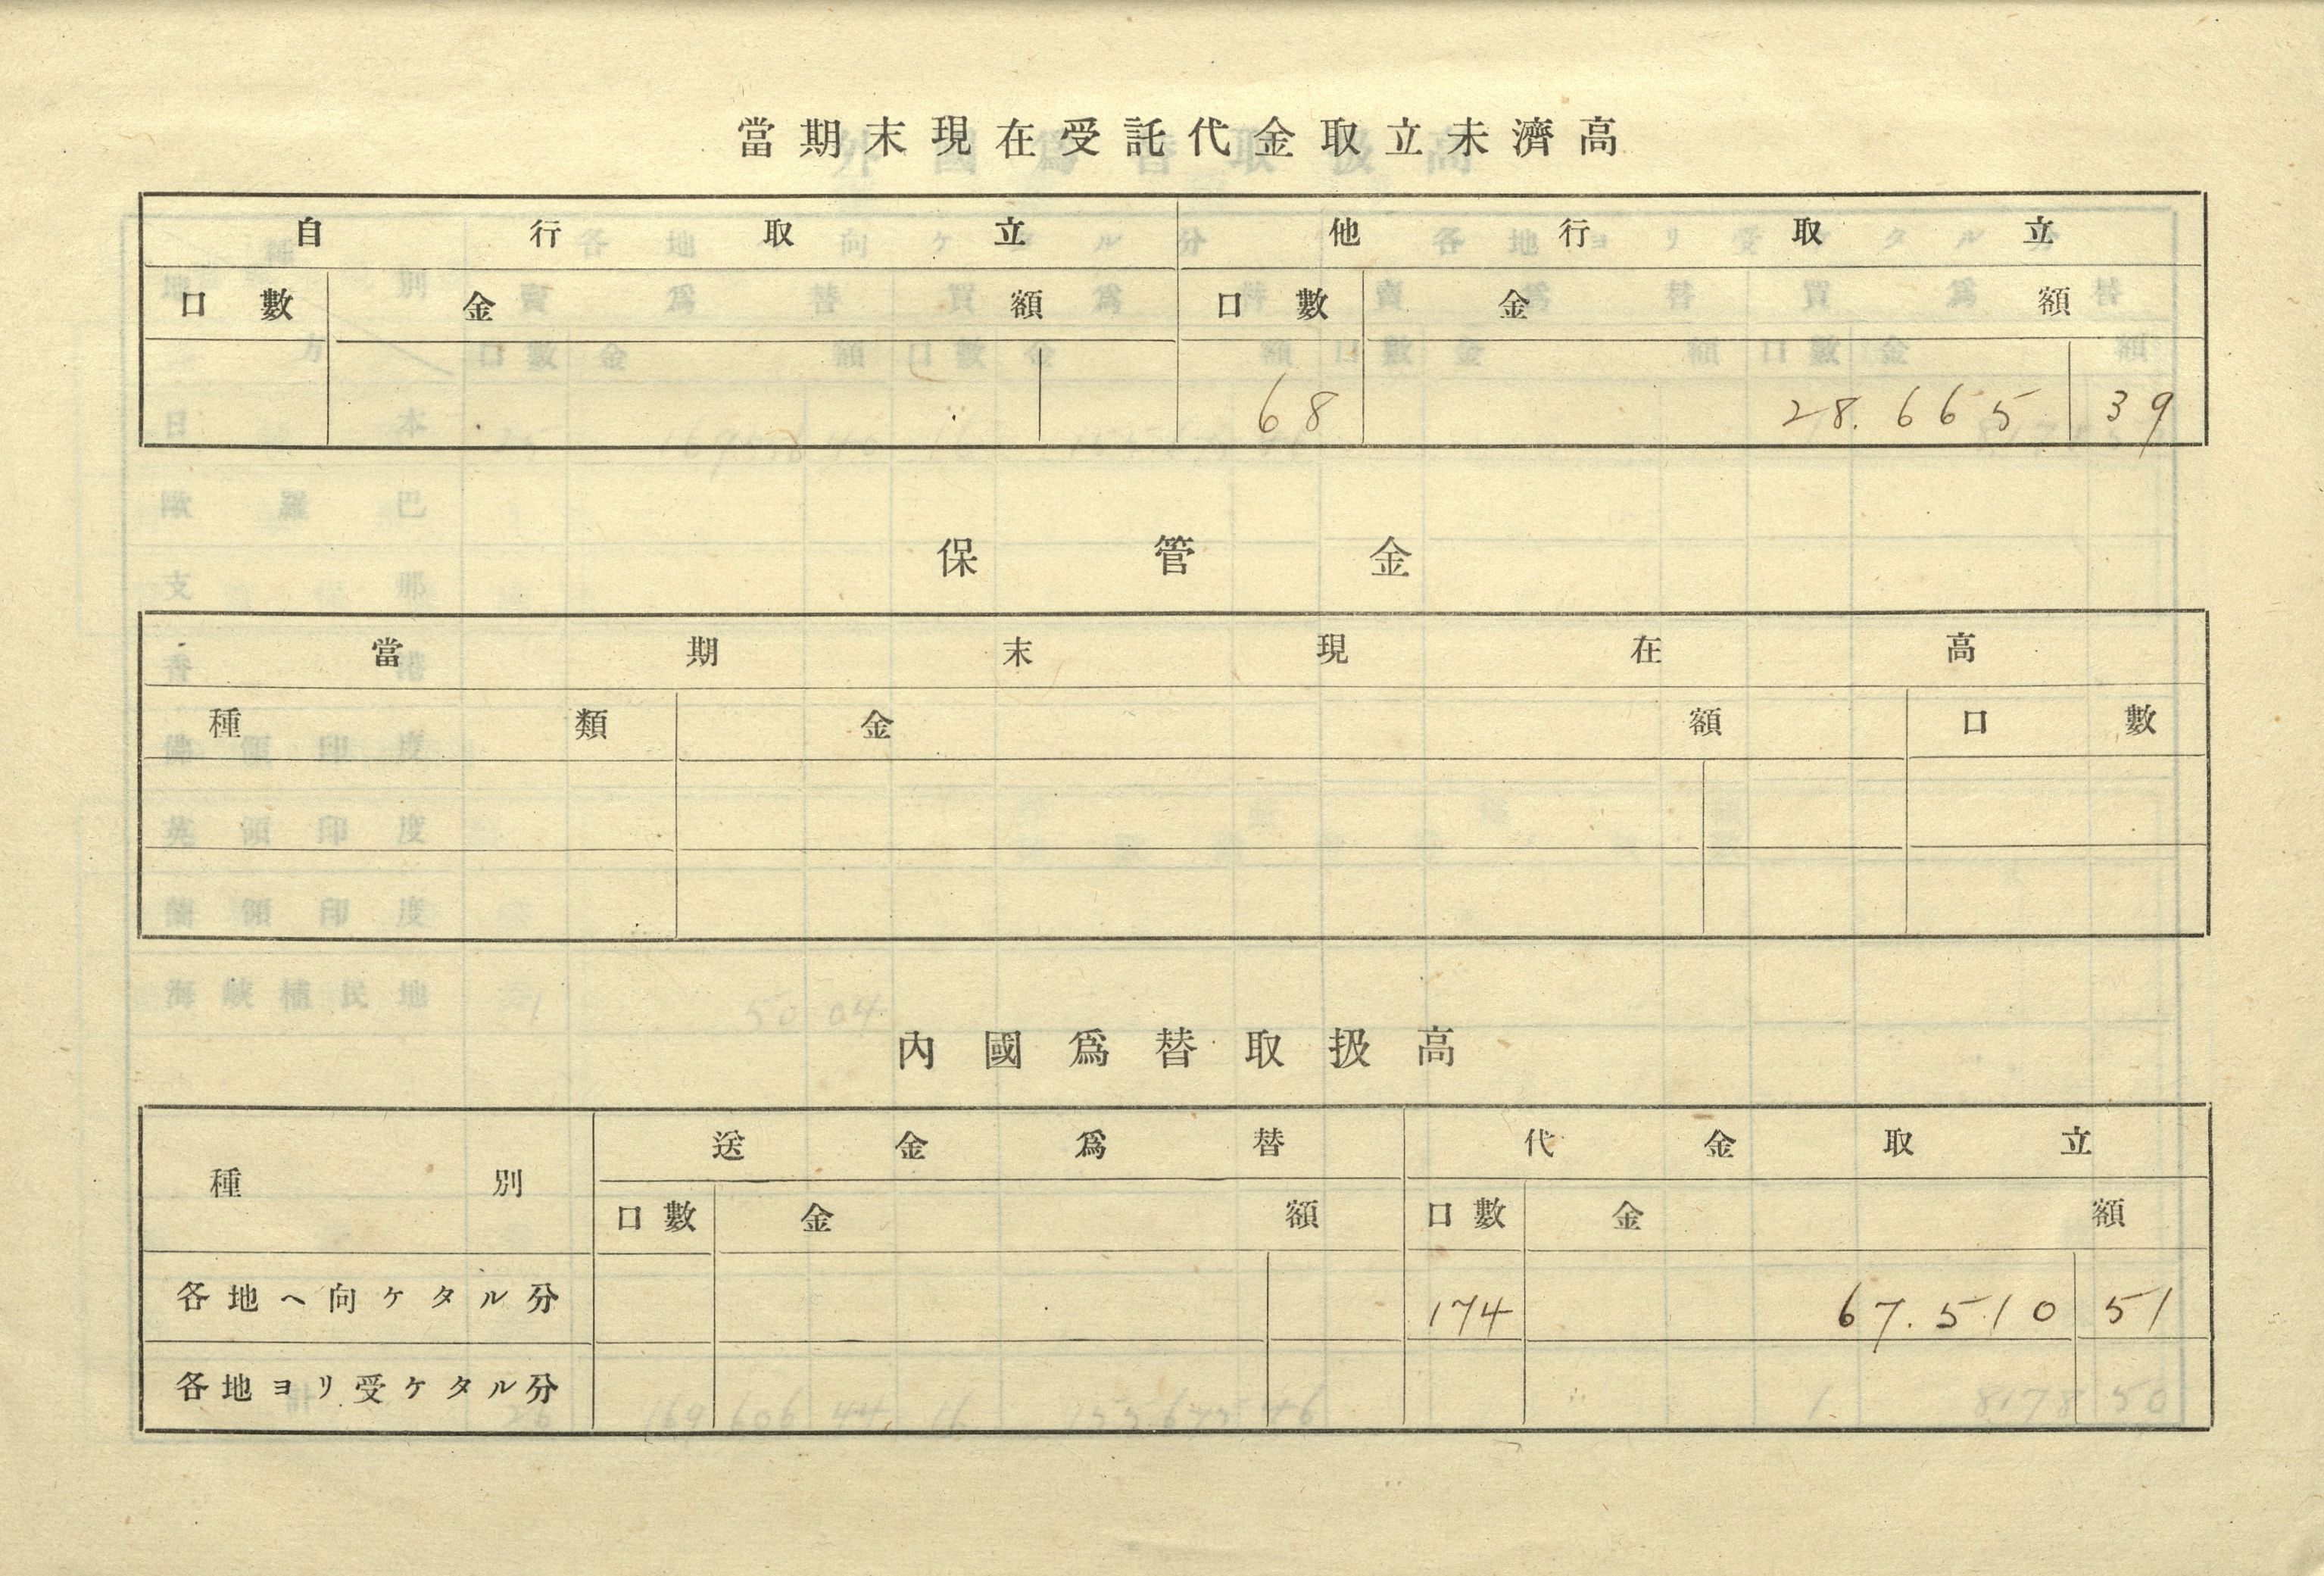 當期末現在受託代金取立未濟高
自行取立 他行取立
口數 金額 口數 金額
68 28.665 39
保管金
當期末現在高
種類 金額 口數
內國爲替取扱高
種別 送金爲替 代金取立
口數 金額 口數 金額
各地ヘ向ケタル分 174 67.510 51
各地ヨリ受ケタル分